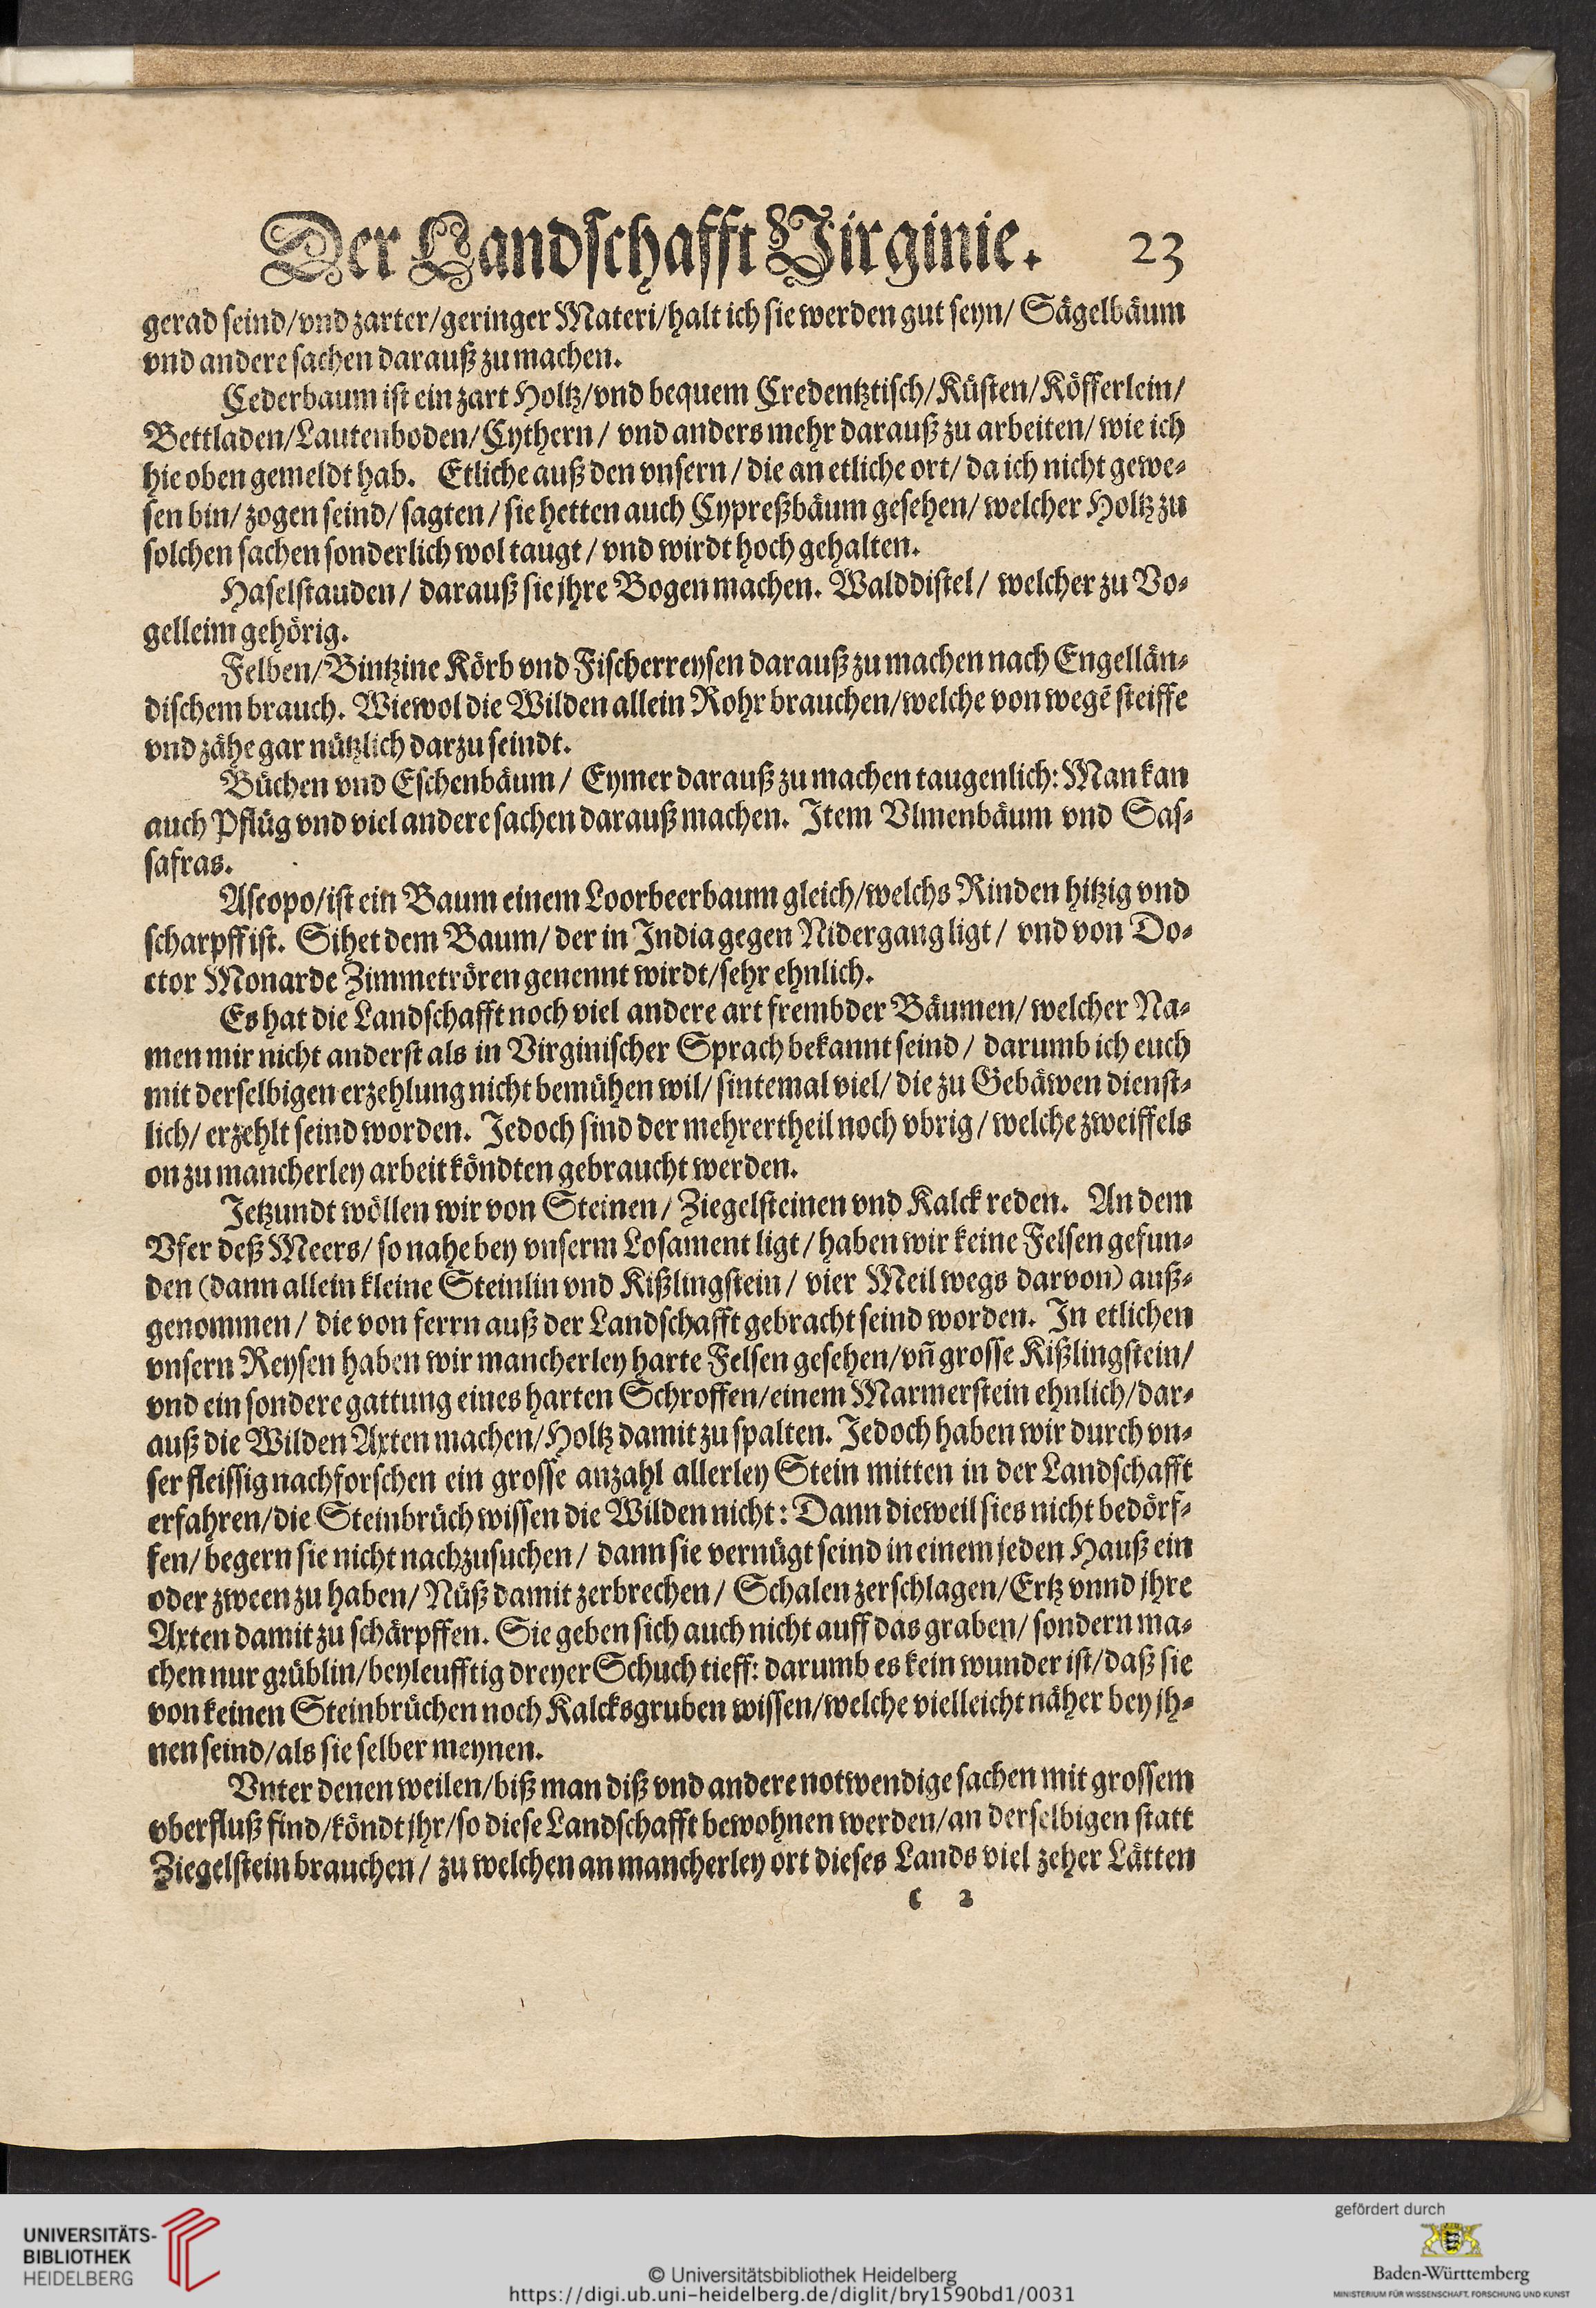 Der Landschafft Virginie. 23
gerad seind/vnd zarter/geringer Materi/halt ich sie werden gut seyn/ Sägelbäum
vnd andere sachen darauß zu machen.
Cederbaum ist ein zart Holtz/vnd bequem Credentztisch/Küsten/Köfferlein/
Bettladen/Lautenboden/Cythern/ vnd anders mehr darauß zu arbeiten/ wie ich
hie oben gemeldt hab. Etliche auß den vnsern/ die an etliche ort/ da ich nicht gewe-
sen bin/ zogen seind/ sagten/ sie hetten auch Cypreßbäum gesehen/ welcher Holtz zu
solchen sachen sonderlich wol taugt/ vnd wirdt hoch gehalten.
Haselstauden/ darauß sie jhre Bogen machen. Walddistel/ welcher zu Vo-
gelleim gehörig.
Felben/Bintzine Körb vnd Fischerreysen darauß zu machen nach Engellän-
dischem brauch. Wiewol die Wilden allein Rohr brauchen/welche von wegẽ steiffe
vnd zähe gar nützlich darzu seindt.
Büchen vnd Eschenbäum/ Eymer darauß zu machen taugenlich: Man kan
auch Pflüg vnd viel andere sachen darauß machen. Item Vlmenbäum vnd Sas-
safras.
Ascopo/ist ein Baum einem Loorbeerbaum gleich/welchs Rinden hitzig vnd
scharpff ist. Sihet dem Baum/ der in India gegen Nidergang ligt/ vnd von Do-
ctor Monarde Zimmetrören genennt wirdt/sehr ehnlich.
Es hat die Landschafft noch viel andere art frembder Bäumen/ welcher Na-
men mir nicht anderst als in Virginischer Sprach bekannt seind/ darumb ich euch
mit derselbigen erzehlung nicht bemühen wil/ sintemal viel/ die zu Gebäwen dienst-
lich/ erzehlt seind worden. Jedoch sind der mehrertheil noch vbrig/ welche zweiffels
on zu mancherley arbeit köndten gebraucht werden.
Jetzundt wöllen wir von Steinen/ Ziegelsteinen vnd Kalck reden. An dem
Vfer deß Meers/ so nahe bey vnserm Losament ligt/ haben wir keine Felsen gefun-
den (dann allein kleine Steinlin vnd Kißlingstein/ vier Meil wegs darvon) auß-
genommen/ die von ferrn auß der Landschafft gebracht seind worden. In etlichen
vnsern Reysen haben wir mancherley harte Felsen gesehen/vñ grosse Kißlingstein/
vnd ein sondere gattung eines harten Schroffen/einem Marmerstein ehnlich/dar-
auß die Wilden Axten machen/Holtz damit zu spalten. Jedoch haben wir durch vn-
ser fleissig nachforschen ein grosse anzahl allerley Stein mitten in der Landschafft
erfahren/die Steinbrüch wissen die Wilden nicht: Dann dieweil sies nicht bedörf-
fen/ begern sie nicht nachzusuchen/ dann sie vernügt seind in einem jeden Hauß ein
oder zween zu haben/ Nüß damit zerbrechen/ Schalen zerschlagen/Ertz vnnd jhre
Axten damit zu schärpffen. Sie geben sich auch nicht auff das graben/ sondern ma-
chen nur grüblin/beyleufftig dreyer Schuch tieff: darumb es kein wunder ist/daß sie
von keinen Steinbrüchen noch Kalcksgruben wissen/welche vielleicht näher bey jh-
nen seind/als sie selber meynen.
Vnter denen weilen/biß man diß vnd andere notwendige sachen mit grossem
vberfluß find/köndt jhr/so diese Landschafft bewohnen werden/an derselbigen statt
Ziegelstein brauchen/ zu welchen an mancherley ort dieses Lands viel zeher Lätten
c 2
UNIVERSITÄTS-
BIBLIOTHEK
HEIDELBERG
© Universitätsbibliothek Heidelberg
https://digi.ub.uni-heidelberg.de/diglit/bry1590bd1/0031
gefördert durch
Baden-Württemberg
MINISTERIUM FÜR WISSENSCHAFT, FORSCHUNG UND KUNST